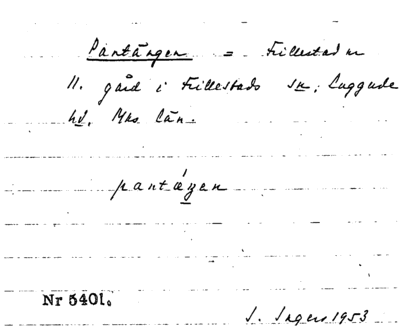 Pantängen = Fillestad nr
11. gård i Fillestads sn, Luggude
hd. Mhs. län.
pantäŋen
Nr 5401.
I. Ingers 1953